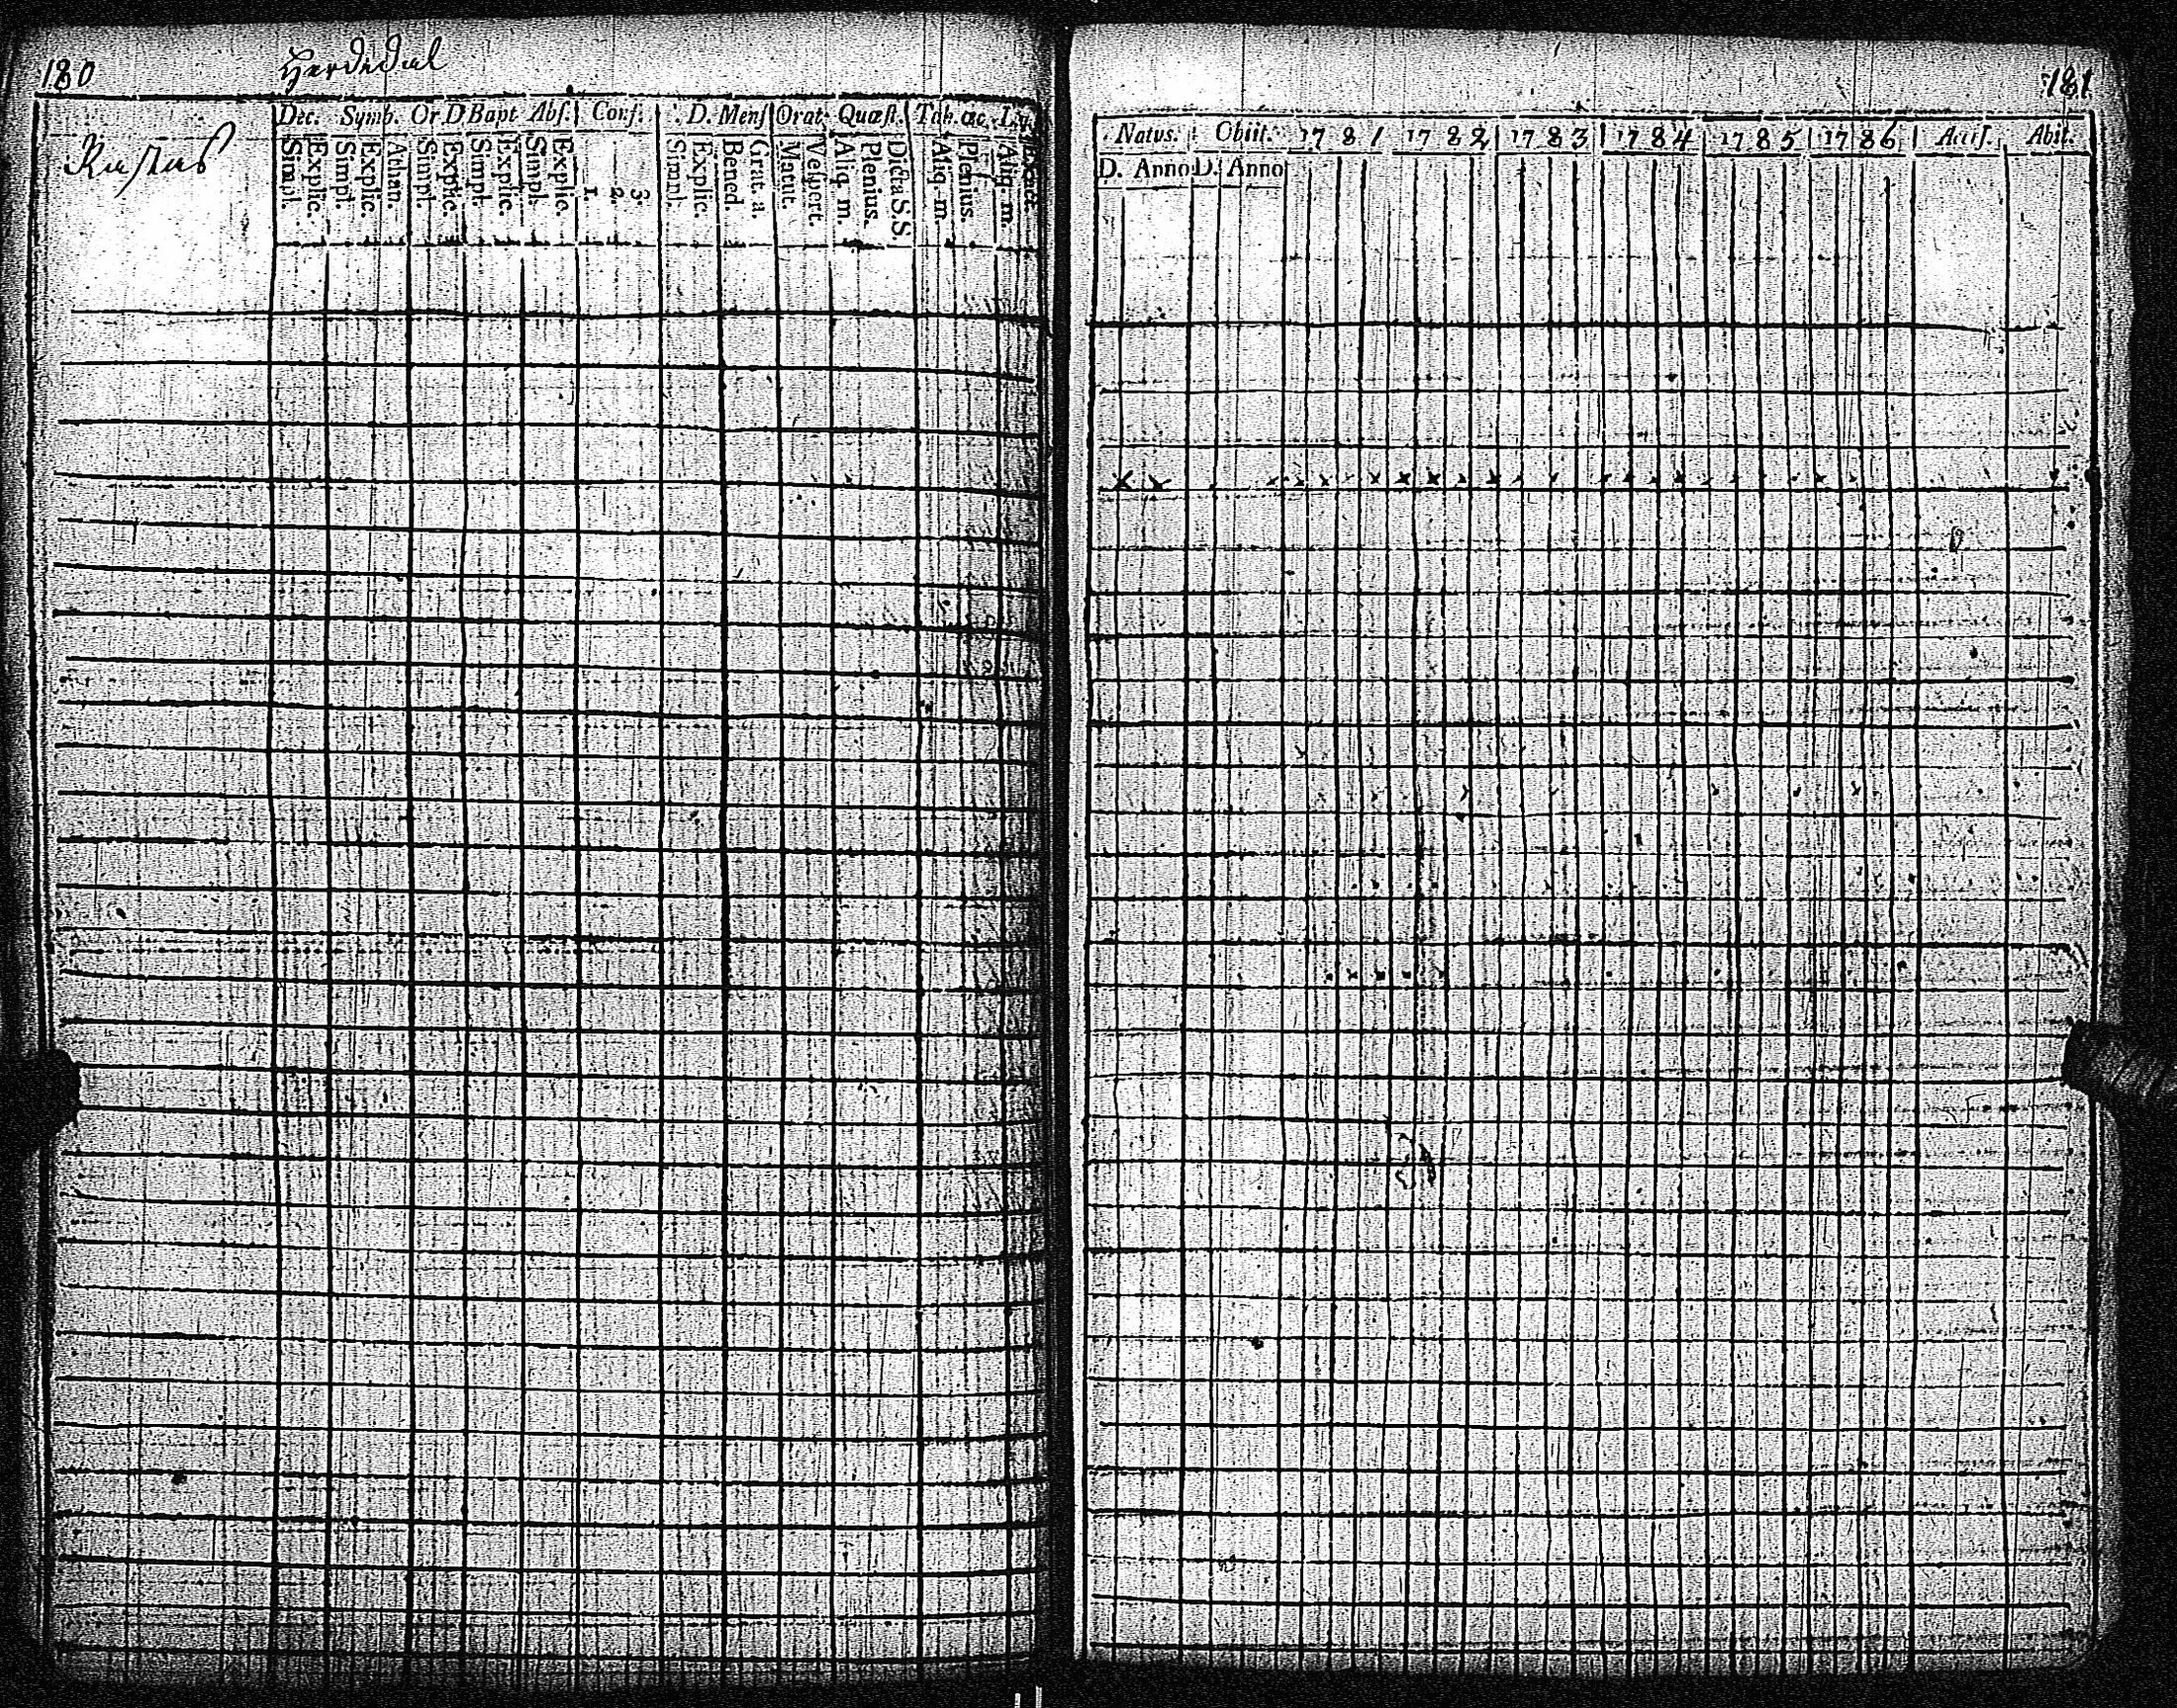 180
Herdedal
Dec. Symb. Or D Bapt Abs. Conf. D. Mens Orat. Quæst. Tab. œc.
Simpl. Explic. Simpl. Explic. Athan. Simpl. Explic. Simpl. Explic. Simpl. Explic. 1. 2. 3. Simpl. Explic. Bened. Grat. a. Matut. Vespert. Aliq. m. Plenius. Dicta S.S Aliq. m. Plenius. Aliq. m.
181
Natus. Obiit. 1781 1782 1783 1784 1785 1786 Abit.
D. Anno D. Anno